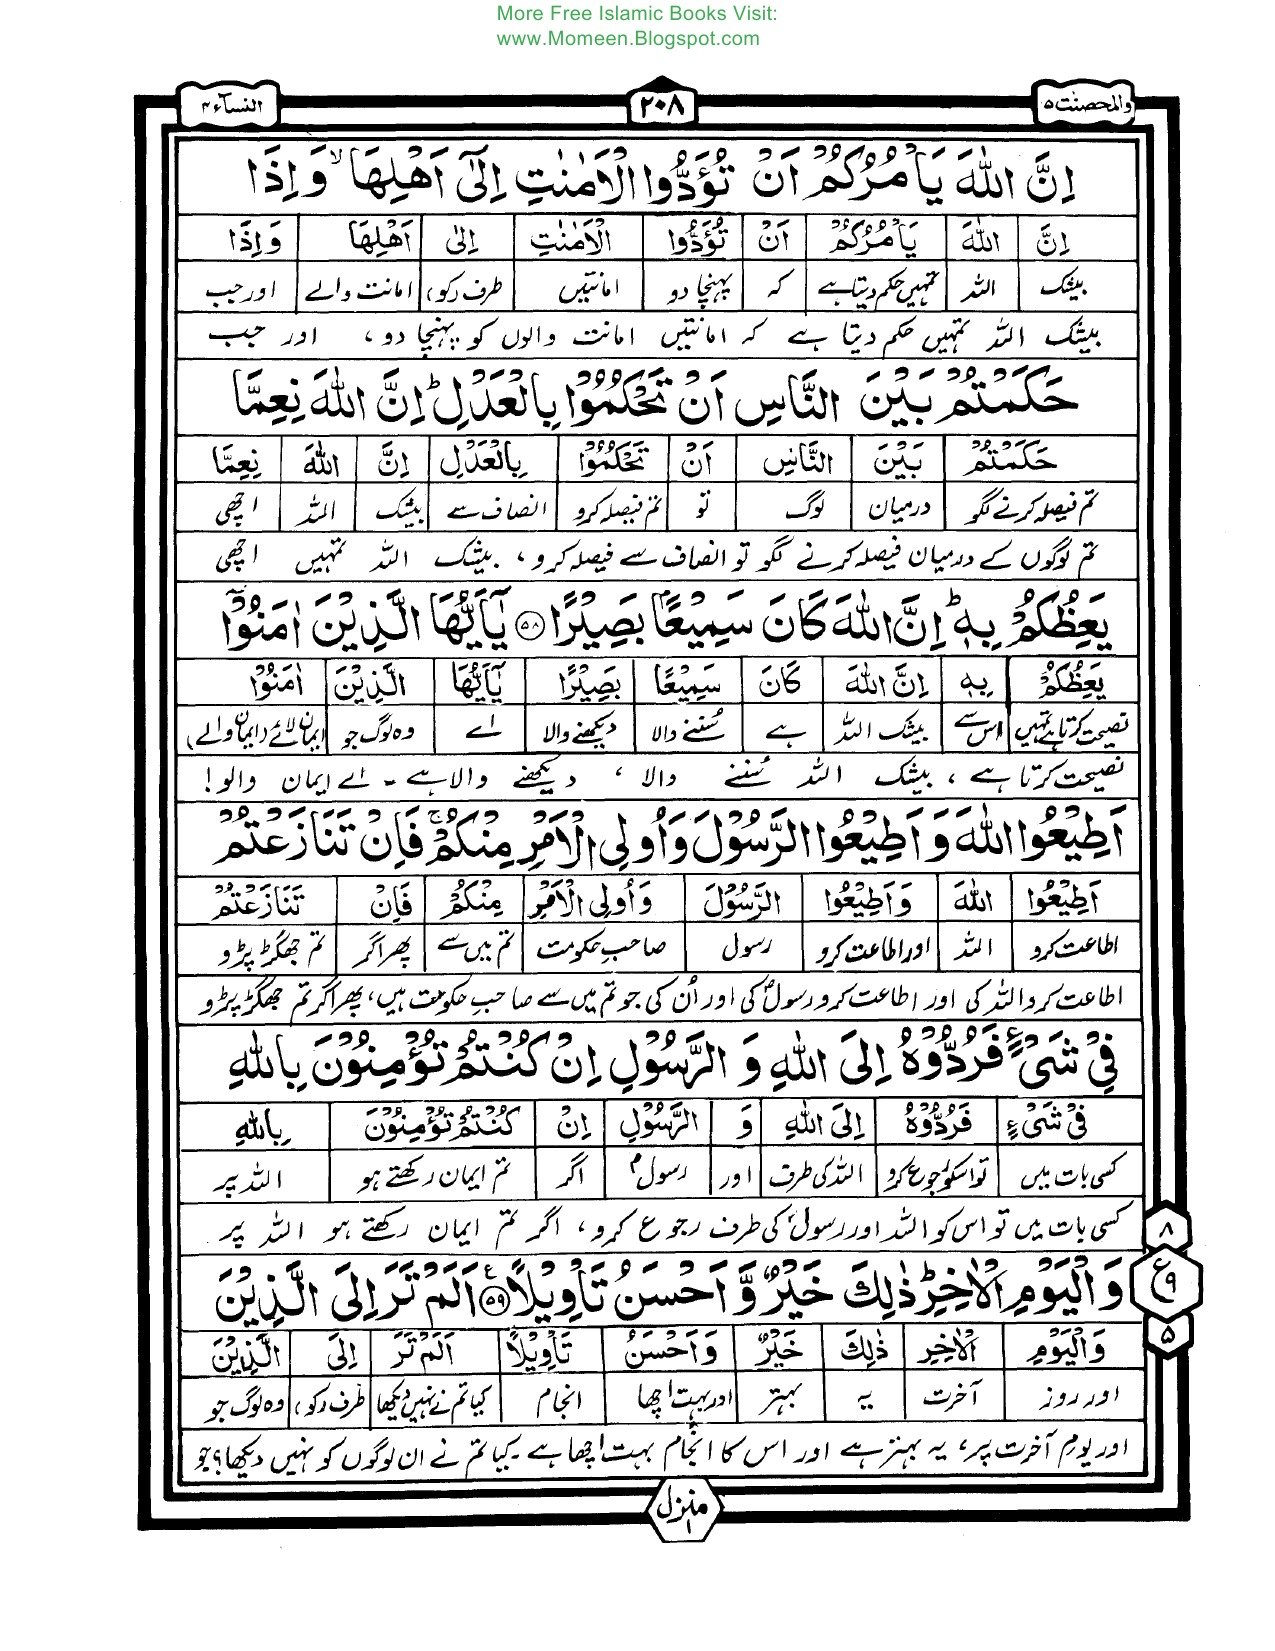 More Free Islamic Books Visit:
www.Momeen.Blogspot.com
والمحصنٰت ۵ ۲۰۸ النسآء ۴
اِنَّ اللّٰهَ یَاْمُرُكُمْ اَنْ تُؤَدُّوا الْاَمٰنٰتِ اِلٰۤی اَهْلِهَا ۙ وَاِذَا
اِنَّ اللّٰهَ یَاْمُرُكُمْ اَنْ تُؤَدُّوا الْاَمٰنٰتِ اِلٰی اَهْلِهَا وَاِذَا
بیشک اللہ تمہیں حکم دیتا ہے کہ پہنچا دو امانتیں طرف (کو) امانت والے اور جب
بیشک اللہ تمہیں حکم دیتا ہے کہ امانتیں امانت والوں کو پہنچا دو، اور جب
حَكَمْتُمْ بَیْنَ النَّاسِ اَنْ تَحْكُمُوْا بِالْعَدْلِ ؕ اِنَّ اللّٰهَ نِعِمَّا
حَكَمْتُمْ بَیْنَ النَّاسِ اَنْ تَحْكُمُوْا بِالْعَدْلِ اِنَّ اللّٰهَ نِعِمَّا
تم فیصلہ کرنے لگو درمیان لوگ تو تم فیصلہ کرو انصاف سے بیشک اللہ اچھی
تم لوگوں کے درمیان فیصلہ کرنے لگو تو انصاف سے فیصلہ کرو، بیشک اللہ تمہیں اچھی
یَعِظُكُمْ بِهٖ ؕ اِنَّ اللّٰهَ كَانَ سَمِیْعًۢا بَصِیْرًا ﴿۵۸﴾ یٰۤاَیُّهَا الَّذِیْنَ اٰمَنُوْۤا
یَعِظُكُمْ بِهٖ اِنَّ اللّٰهَ كَانَ سَمِیْعًۢا بَصِیْرًا یٰۤاَیُّهَا الَّذِیْنَ اٰمَنُوْا
نصیحت کرتا ہے تمہیں اس سے بیشک اللہ ہے سُننے والا دیکھنے والا اے وہ لوگ جو ایمان لائے (ایمان والے)
نصیحت کرتا ہے، بیشک اللہ سُننے والا، دیکھنے والا ہے۔ اے ایمان والو!
اَطِیْعُوا اللّٰهَ وَ اَطِیْعُوا الرَّسُوْلَ وَاُولِی الْاَمْرِ مِنْكُمْ ۚ فَاِنْ تَنَازَعْتُمْ
اَطِیْعُوا اللّٰهَ وَاَطِیْعُوا الرَّسُوْلَ وَاُولِی الْاَمْرِ مِنْكُمْ فَاِنْ تَنَازَعْتُمْ
اطاعت کرو اللہ اور اطاعت کرو رسول صاحبِ حکومت تم میں سے پھر اگر تم جھگڑ پڑو
اطاعت کرو اللہ کی اور اطاعت کرو رسولؐ کی اور اُن کی جو تم میں سے صاحبِ حکومت ہیں، پھر اگر تم جھگڑ پڑو
فِیْ شَیْءٍ فَرُدُّوْهُ اِلَی اللّٰهِ وَ الرَّسُوْلِ اِنْ كُنْتُمْ تُؤْمِنُوْنَ بِاللّٰهِ
فِیْ شَیْءٍ فَرُدُّوْهُ اِلَی اللّٰهِ وَ الرَّسُوْلِ اِنْ كُنْتُمْ تُؤْمِنُوْنَ بِاللّٰهِ
کسی بات میں تو اسکو رجوع کرو اللہ کی طرف اور رسولؐ اگر تم ایمان رکھتے ہو اللہ پر
کسی بات میں تو اس کو اللہ اور رسولؐ کی طرف رجوع کرو، اگر تم ایمان رکھتے ہو اللہ پر
وَ الْیَوْمِ الْاٰخِرِ ؕ ذٰلِكَ خَیْرٌ وَّ اَحْسَنُ تَاْوِیْلًا ﴿۵۹﴾ اَلَمْ تَرَ اِلَی الَّذِیْنَ
وَالْیَوْمِ الْاٰخِرِ ذٰلِكَ خَیْرٌ وَاَحْسَنُ تَاْوِیْلًا اَلَمْ تَرَ اِلَی الَّذِیْنَ
اور روز آخرت یہ بہتر اور بہت اچھا انجام کیا تم نے نہیں دیکھا طرف (کو) وہ لوگ جو
اور یومِ آخرت پر، یہ بہتر ہے اور اس کا انجام بہت اچھا ہے۔ کیا تم نے ان لوگوں کو نہیں دیکھا؟ جو
۸
ع ۹
۵
منزل ۱